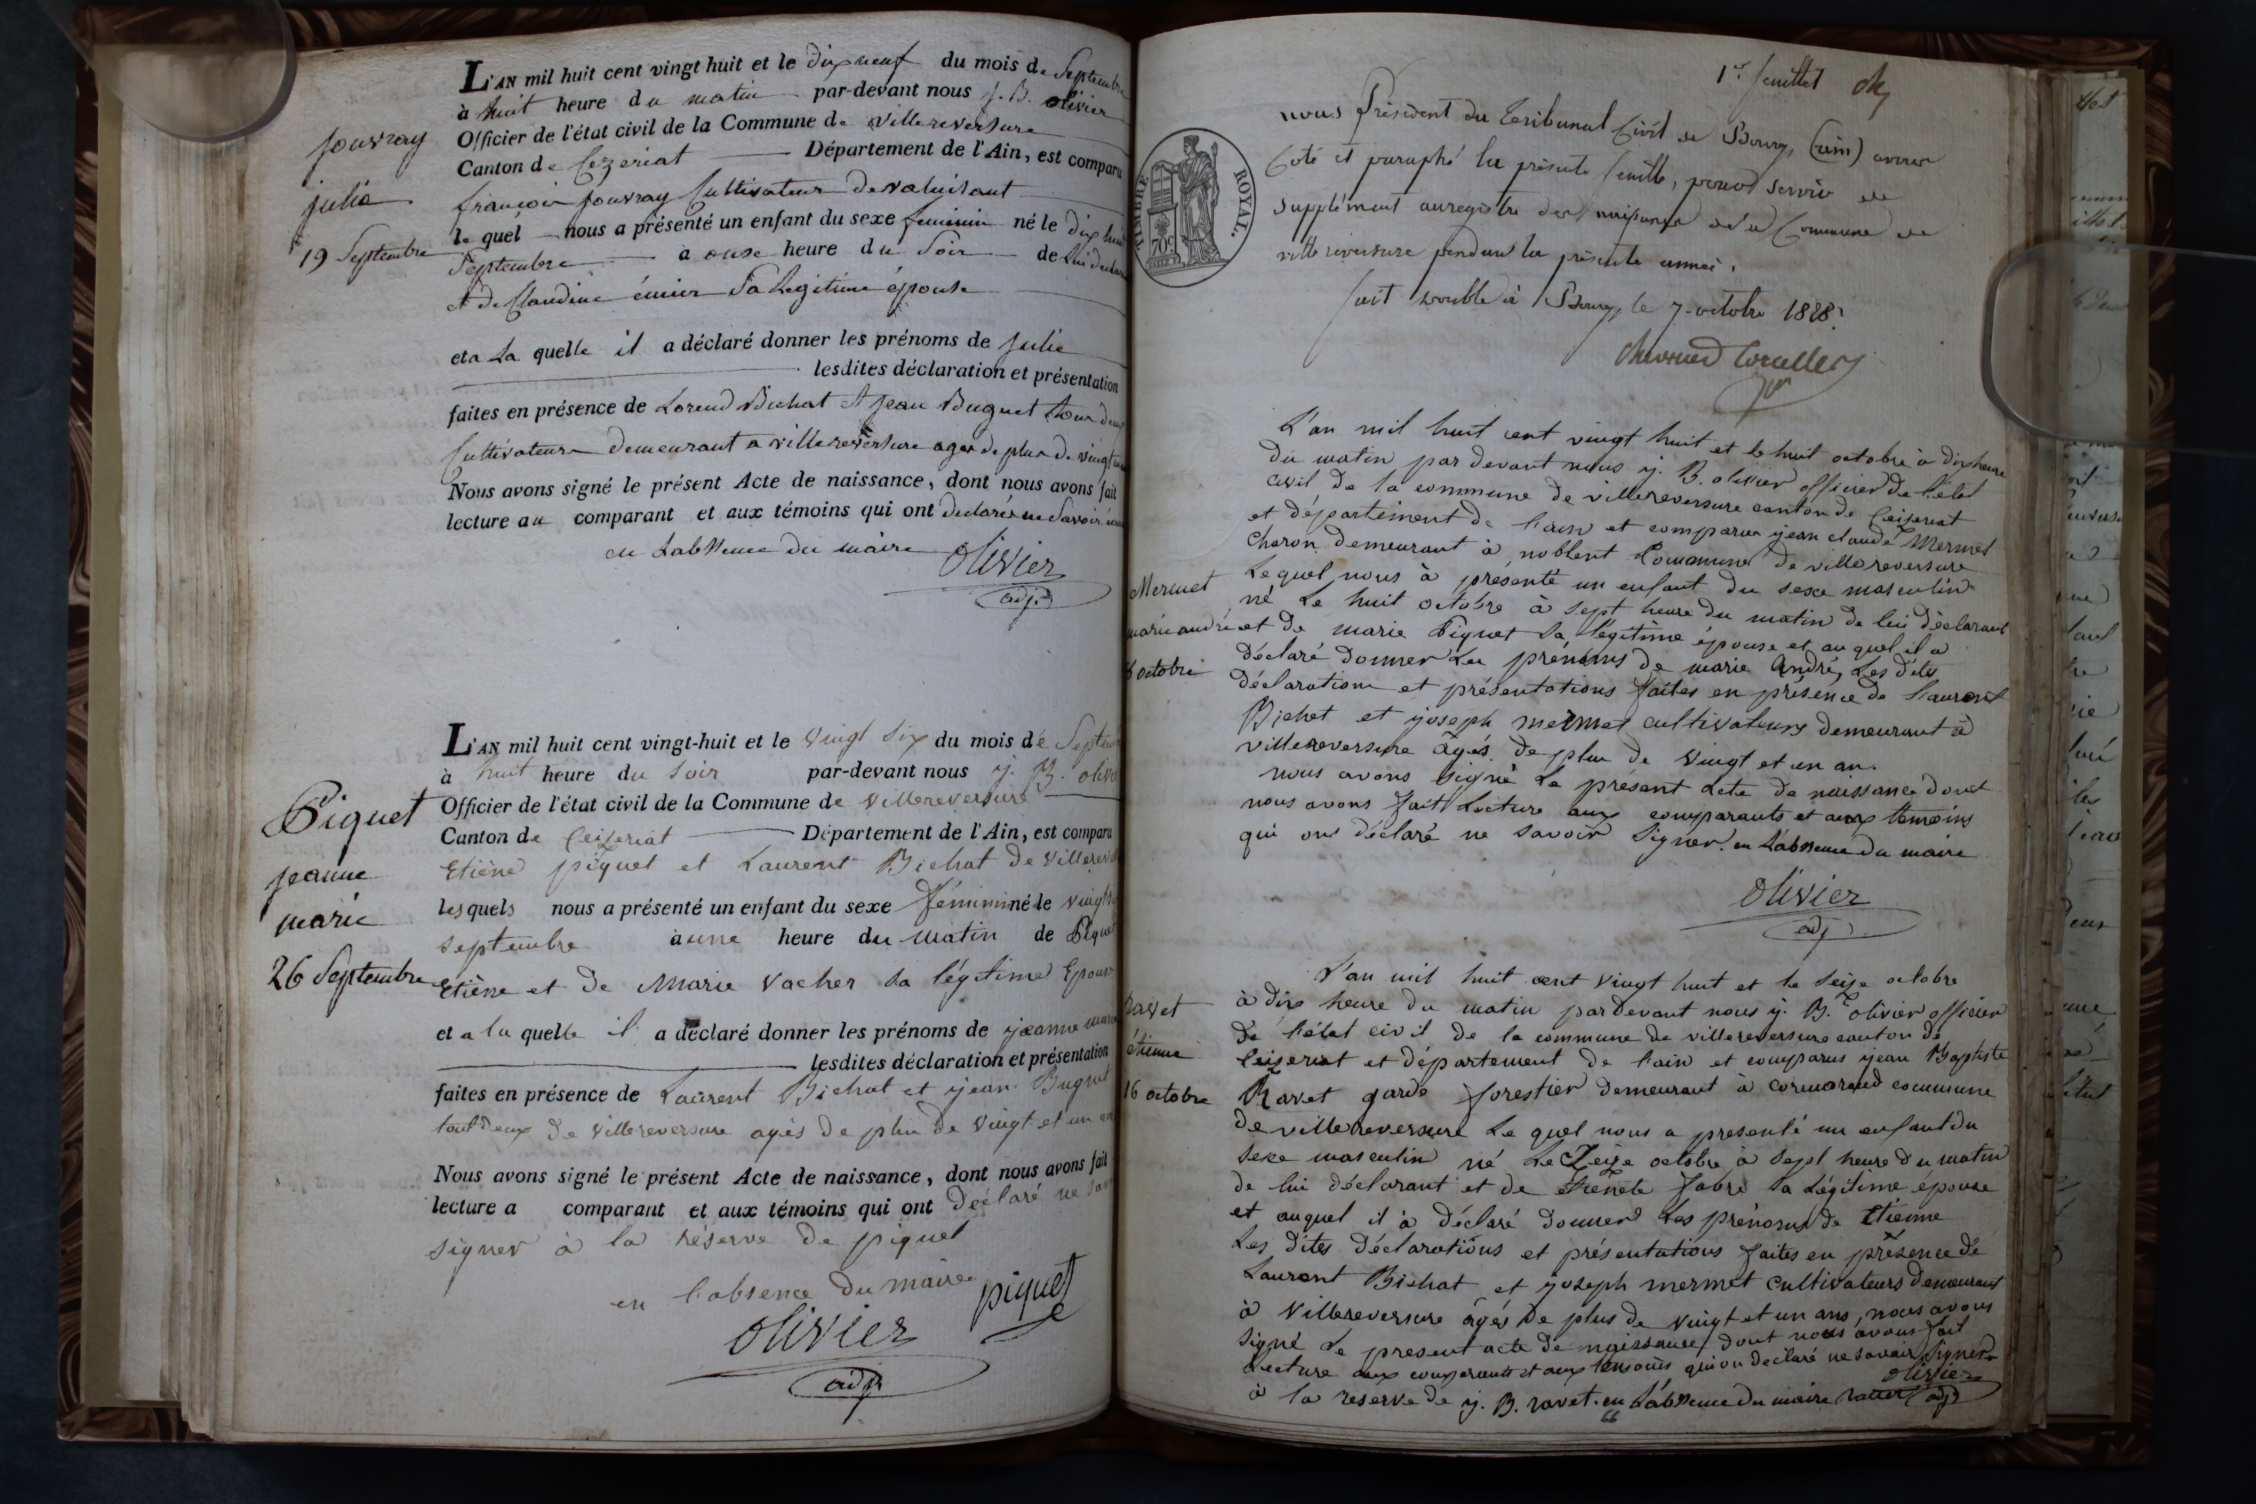 L'AN mil huit cent vingt huit et le dix neuf du mois de Septembre
à huit heure du matin par-devant nous J. B. olivier
Officier de l'état civil de la Commune de villereversure
Canton de Cezeriat Département de l'Ain, est comparu
françois jouvray Cultivateur
le quel nous a présenté un enfant du sexe feminin né le dix huit
Septembre à onse heure du Soir de Lui
et de Claudine Sa Legitime épouse
eta La quelle il a déclaré donner les prénoms de julie
lesdites déclaration et présentation
faites en présence de Lorend Bichat et jean Buguet tous deux
Cultivateurs demeurant a villereversure ages de plus de vingt
Nous avons signé le présent Acte de naissance, dont nous avons fait
lecture au comparant et aux témoins qui ont declarés ne Savoir
en Labssence du maire olivier
adj
jouvray
julie
19 Septembre
L'AN mil huit cent vingt-huit et le vingt six du mois de Septem
à huit heure du soir par-devant nous j. B. oliv
Officier de l'état civil de la Commune de villereversure
Canton de Ceizeriat Département de l'Ain, est comparu
Etiène piquet et Laurent Bichat de villerever
lesquels nous a présenté un enfant du sexe féminin né le vingt
septembre à une heure du matin de Piquet
Etiène et de Marie vacher sa légitime Epouse
et a la quelle il a déclaré donner les prénoms de jeanne marie
lesdites déclaration et présentation
faites en présence de Laurent Bichat et jean Buguet
tout deux de villereversure agés de plus de vingt et un an
Nous avons signé le présent Acte de naissance, dont nous avons fait
lecture a comparant et aux témoins qui ont déclaré ne sav
signer à la réserve de piquet
en l'absence du maire piquet
olivier
adj
Piquet
jeanne
marie
26 Septembre
1er feuillet
nous Président du Tribunal Civil de Bourg, (ain) avons
Coté et paraphé la présente feuille, pour servir de
Supplément au registre des naissances de la Commune de
villereversure pendant la présente année.
fait double à Bourg, le 7 octobre 1828
TIMBRE ROYAL.
70c
L'an mil huit cent vingt huit et le huit octobre à dix heure
du matin par devant nous j. B. olivier officier de l'état
civil de la commune de villereversure canton de Ceizeriat
et département de l'ain et comparu jean claude Mermet
charon demeurant à noblent Commune de villereversure
Lequel nous à présenté un enfant du sexe masculin
né Le huit octobre à sept heure du matin de lui déclarant
et de marie Piquet sa légitime épouse et au quel il a
déclaré donner Les prénoms de marie André, Les dites
déclaration et présentations faites en présence de Laurent
Bichet et joseph mermet cultivateurs demeurant à
villereversure âgés de plus de vingt et un an.
nous avons signé Le présent acte de naissance dont
nous avons fait Lecture aux comparants et aux témoins
qui ont déclaré ne savoir signer. en L'abssence du maire
olivier
adj
Mermet
marie andré
8 octobre
L'an mil huit cent vingt huit et le seize octobre
à dix heure du matin pardevant nous j. B. olivier officier
de l'état civil de la commune de villereversure canton de
Ceizeriat et département de l'ain et comparus jean Baptiste
Ravet garde forestier demeurant à cormorand commune
de villereversure Le quel nous a presenté un enfant du
sexe masculin né Le Zeize octobre à sept heure du matin
de lui déclarant et de fabre sa Légitime épouse
et auquel il à déclaré donner Les prénoms de Etiénne
Les dites déclarations et présentations faites en présence de
Laurent Bichat et joseph mermet cultivateurs demeurant
à villereversure âgés de plus de vingt et un ans, nous avons
signé Le present acte de naissance dont nous avons fait
Lecture aux comparants et aux témoins qui on déclaré ne savoir signer
à la reserve de j. B. ravet. en L'abssence du maire ravet olivier adj
Ravet
étienne
16 octobre